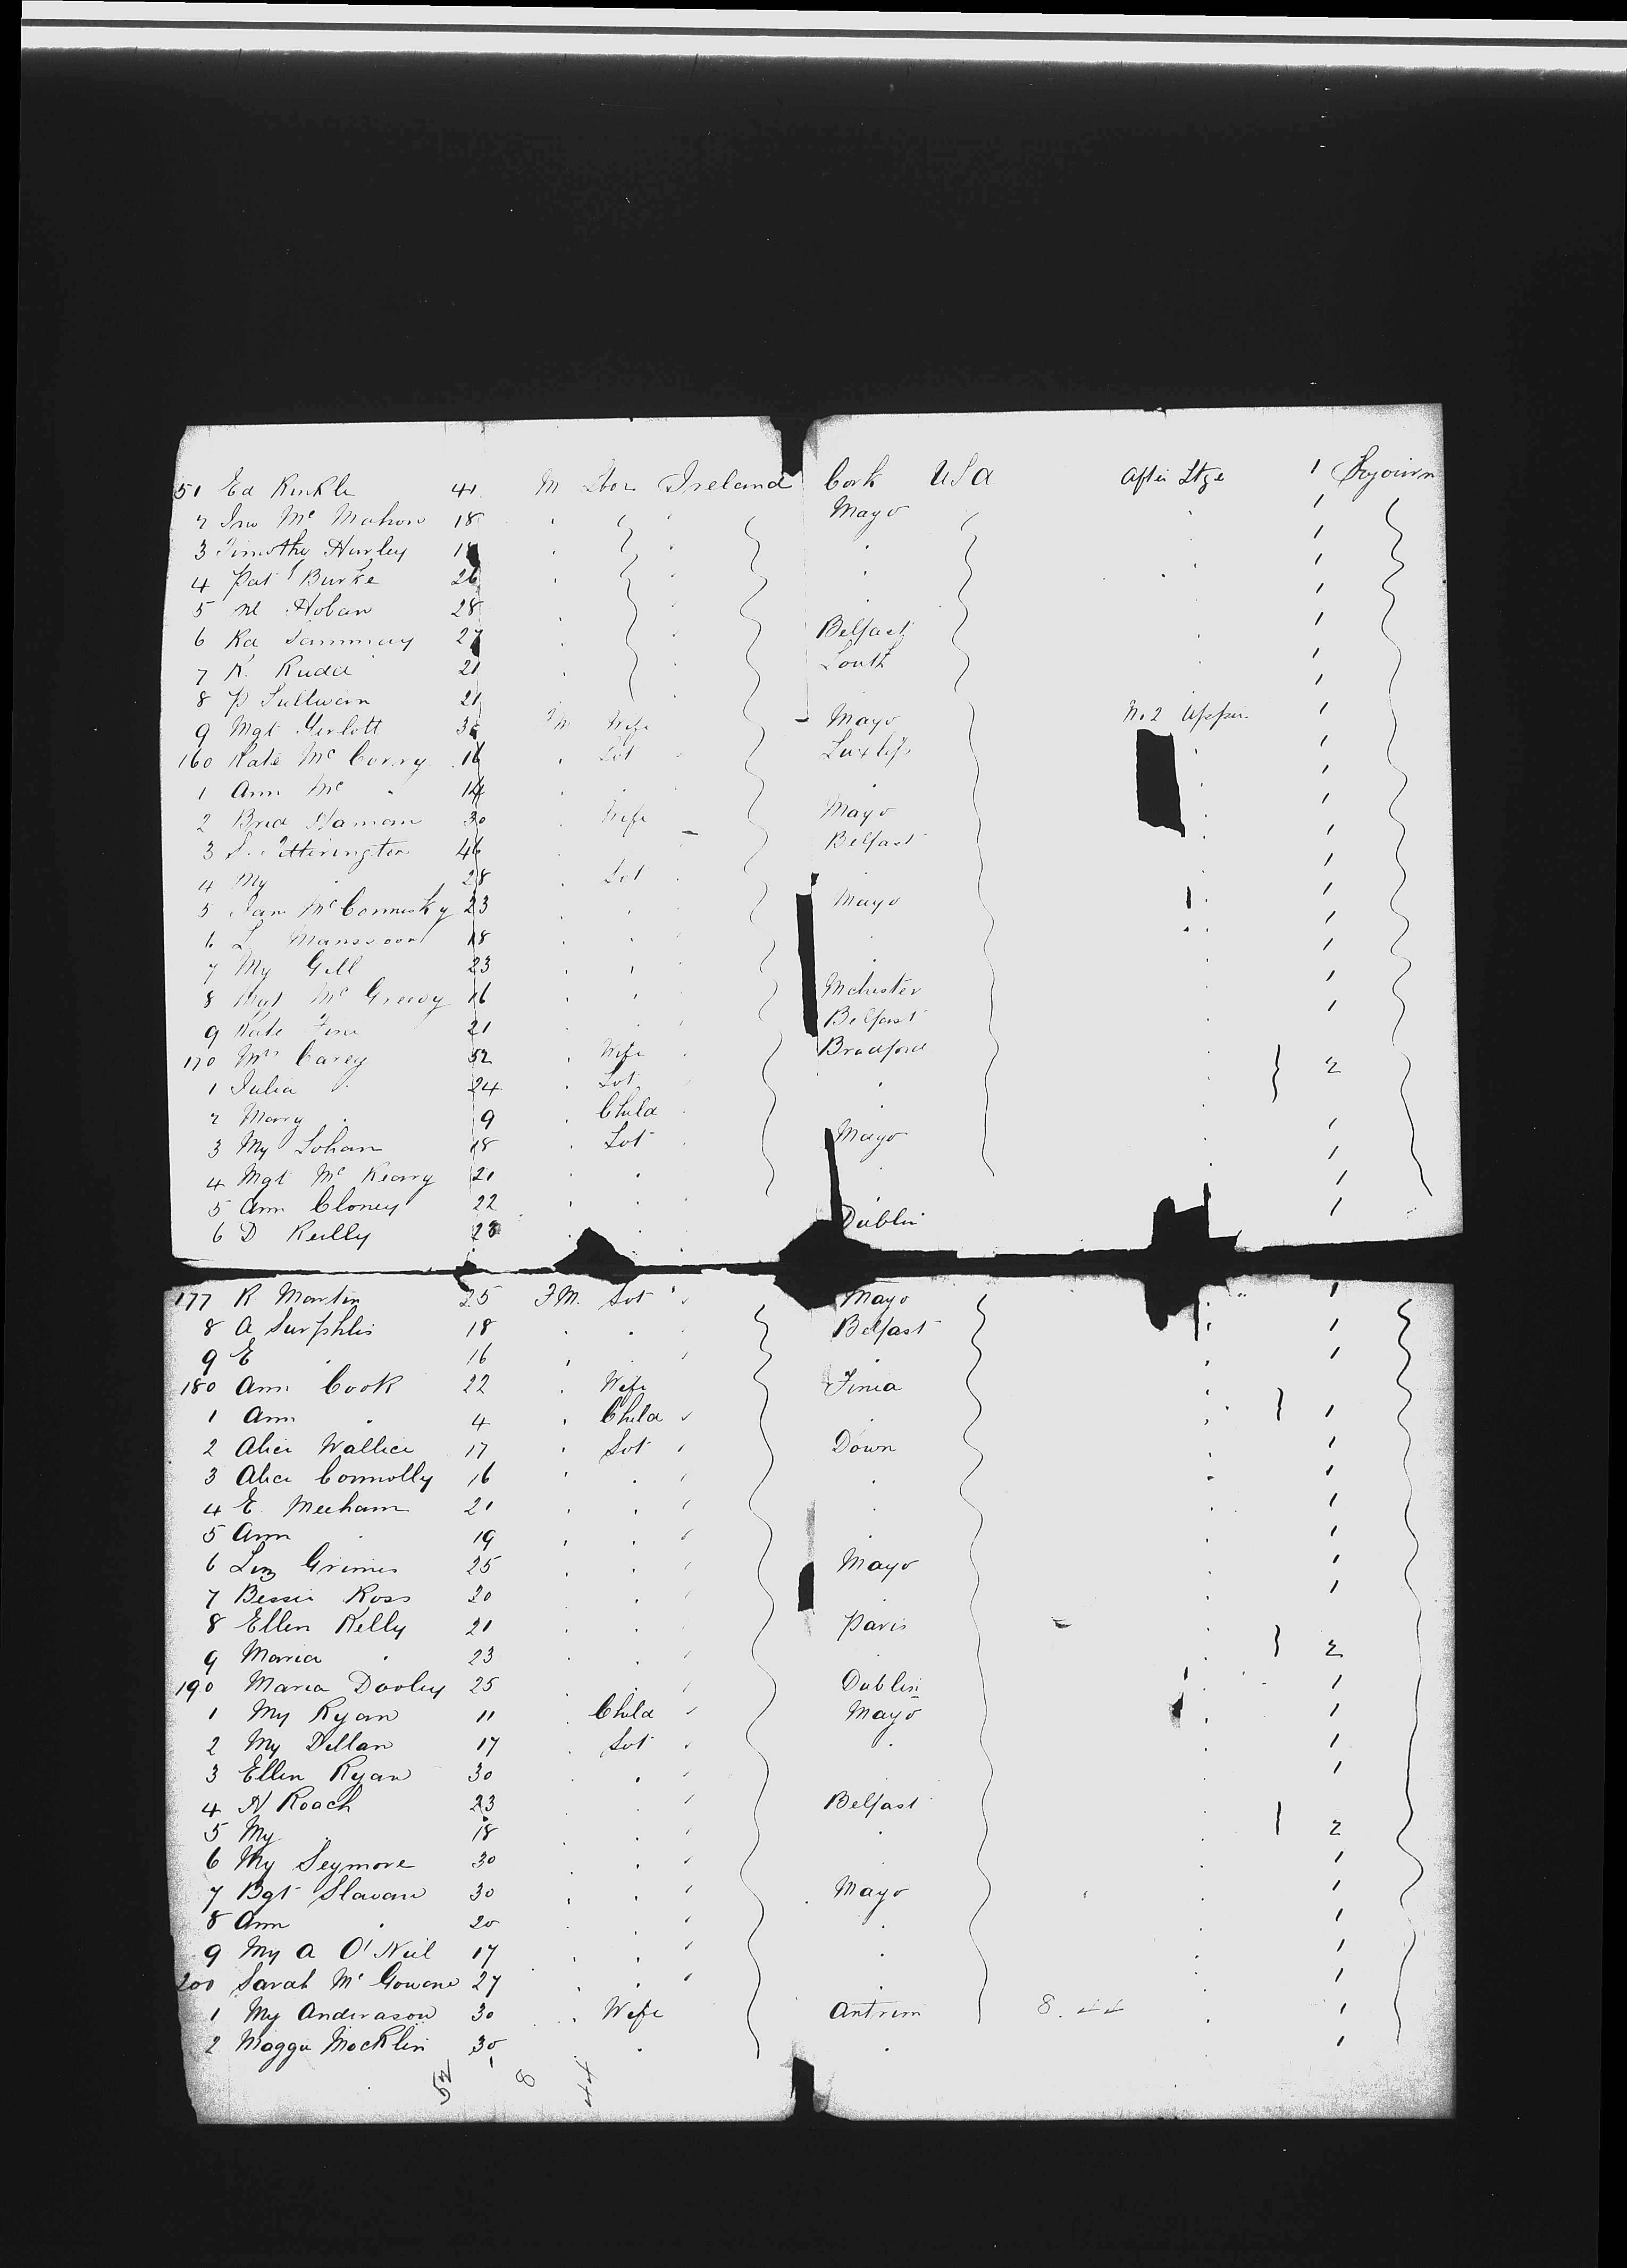 51 Ed Kinkle 41 M Lbor Ireland Cork USA After Stge 1 Sojourn
2 Jno Mc Mahon 18 " " " Mayo " 1
3 Timothy Hurley " " " 1
4 Pat Burke 26 " " " 1
5 Ml Hoban 28 " " " 1
6 Rd Sammway 27 " " Belfast " 1
7 R. Rudd 21 " " Louth " 1
8 P Sullivan 21 " " 1
9 Mgt 3 FM Wife Mayo No 2 Upper 1
160 Kate Mc Corry 16 " Sot " 1
1 Ann Mc " 14 " " " " 1
2 Brid 30 " Wife Mayo 1
3 S. 46 Belfast " 1
4 My " 28 " Sot " 1
5 Jane McConnisky 23 " " Mayo " 1
6 L 18 " " " " 1
7 My Gill 23 " " " " 1
8 Mgt Mc Greevy 16 " " Mchester 1
9 Kate 21 " " Belfast " 1
170 Mrs Carey 52 " Wife " Bradford " } 2
1 Julia " 24 " Sot " "
2 Mary " 9 " Child " " "
3 My Lohan 18 " Sot " Mayo " 1
4 Mgt Mc Keary 21 " " " " 1
5 Ann Cloney 22 " " " " 1
6 D Reilly 28 " " " Dublin 1
177 R Martin 25 FM. Sot " Mayo " 1
8 A Surphlis 18 " " Belfast " 1
9 E " 16 " " " " 1
180 Ann Cook 22 " Wife Finea "
1 Ann " 4 " Child " " " } 1
2 Alice Wallice 17 " Sot " Down " 1
3 Alice Connolly 16 " " " " " 1
4 E. Meeham 21 " " " " " 1
5 Ann " 19 " " " " " 1
6 Liz Grimes 25 " " " Mayo " 1
7 Bessie Ross 20 " " " " 1
8 Ellen Kelly 21 " " Paris "
9 Maria " 23 " " " " } 2
190 Maria Dooley 25 " " " Dublin " 1
1 My Ryan 11 " Child " Mayo " 1
2 My Dillan 17 " Sot " " " 1
3 Ellen Ryan 30 " " " " 1
4 N Roach 23 " " Belfast
5 My " 18 " " " " } 2
6 My Seymore 30 " " " " 1
7 Bgt Slavan 30 " " " Mayo " 1
8 Ann " 20 " " " " " 1
9 My A O'Neil 17 " " " " " 1
200 Sarah Mc Gowene 27 " " " " " 1
1 My Anderason 30 " Wife Antrim 8 44 " 1
2 Maggie Mocklin 30 " " 1
52 8 44